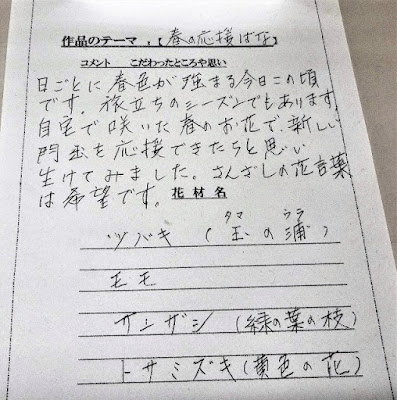 作品のテーマ :【春の応援ばな】
コメント こだわったところや思い
日ごとに春色が強まる今日この頃
です。旅立ちのシーズンでもあります。
自宅で咲いた春のお花で、新しい
門出を応援できたらと思い
生けてみました。さんざしの花言葉
は希望です。
花材名
ツバキ (玉の浦)
タマ ウラ
モモ
サンザシ (緑の葉の枝)
トサミズキ(黄色の花)